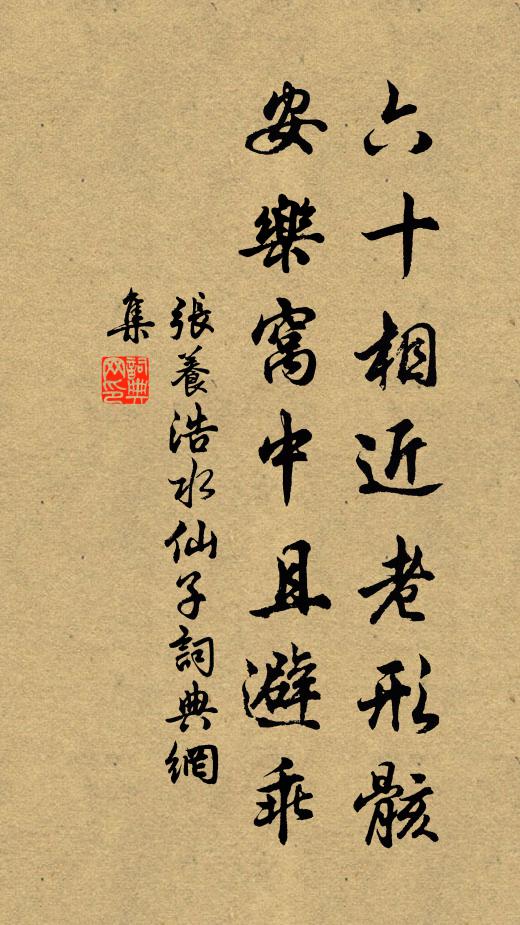 六十相近老形骸
安樂窩中且避乖
張養浩水仙子詞典網
集
詞典
网印